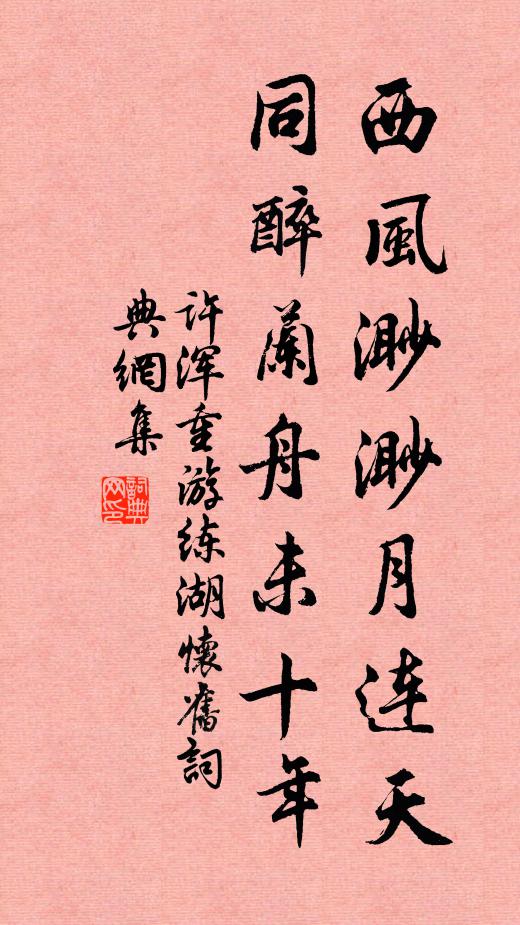 西風渺渺月連天
同醉蘭舟未十年
许浑重游练湖懷舊詞
典網集
詞典
网印